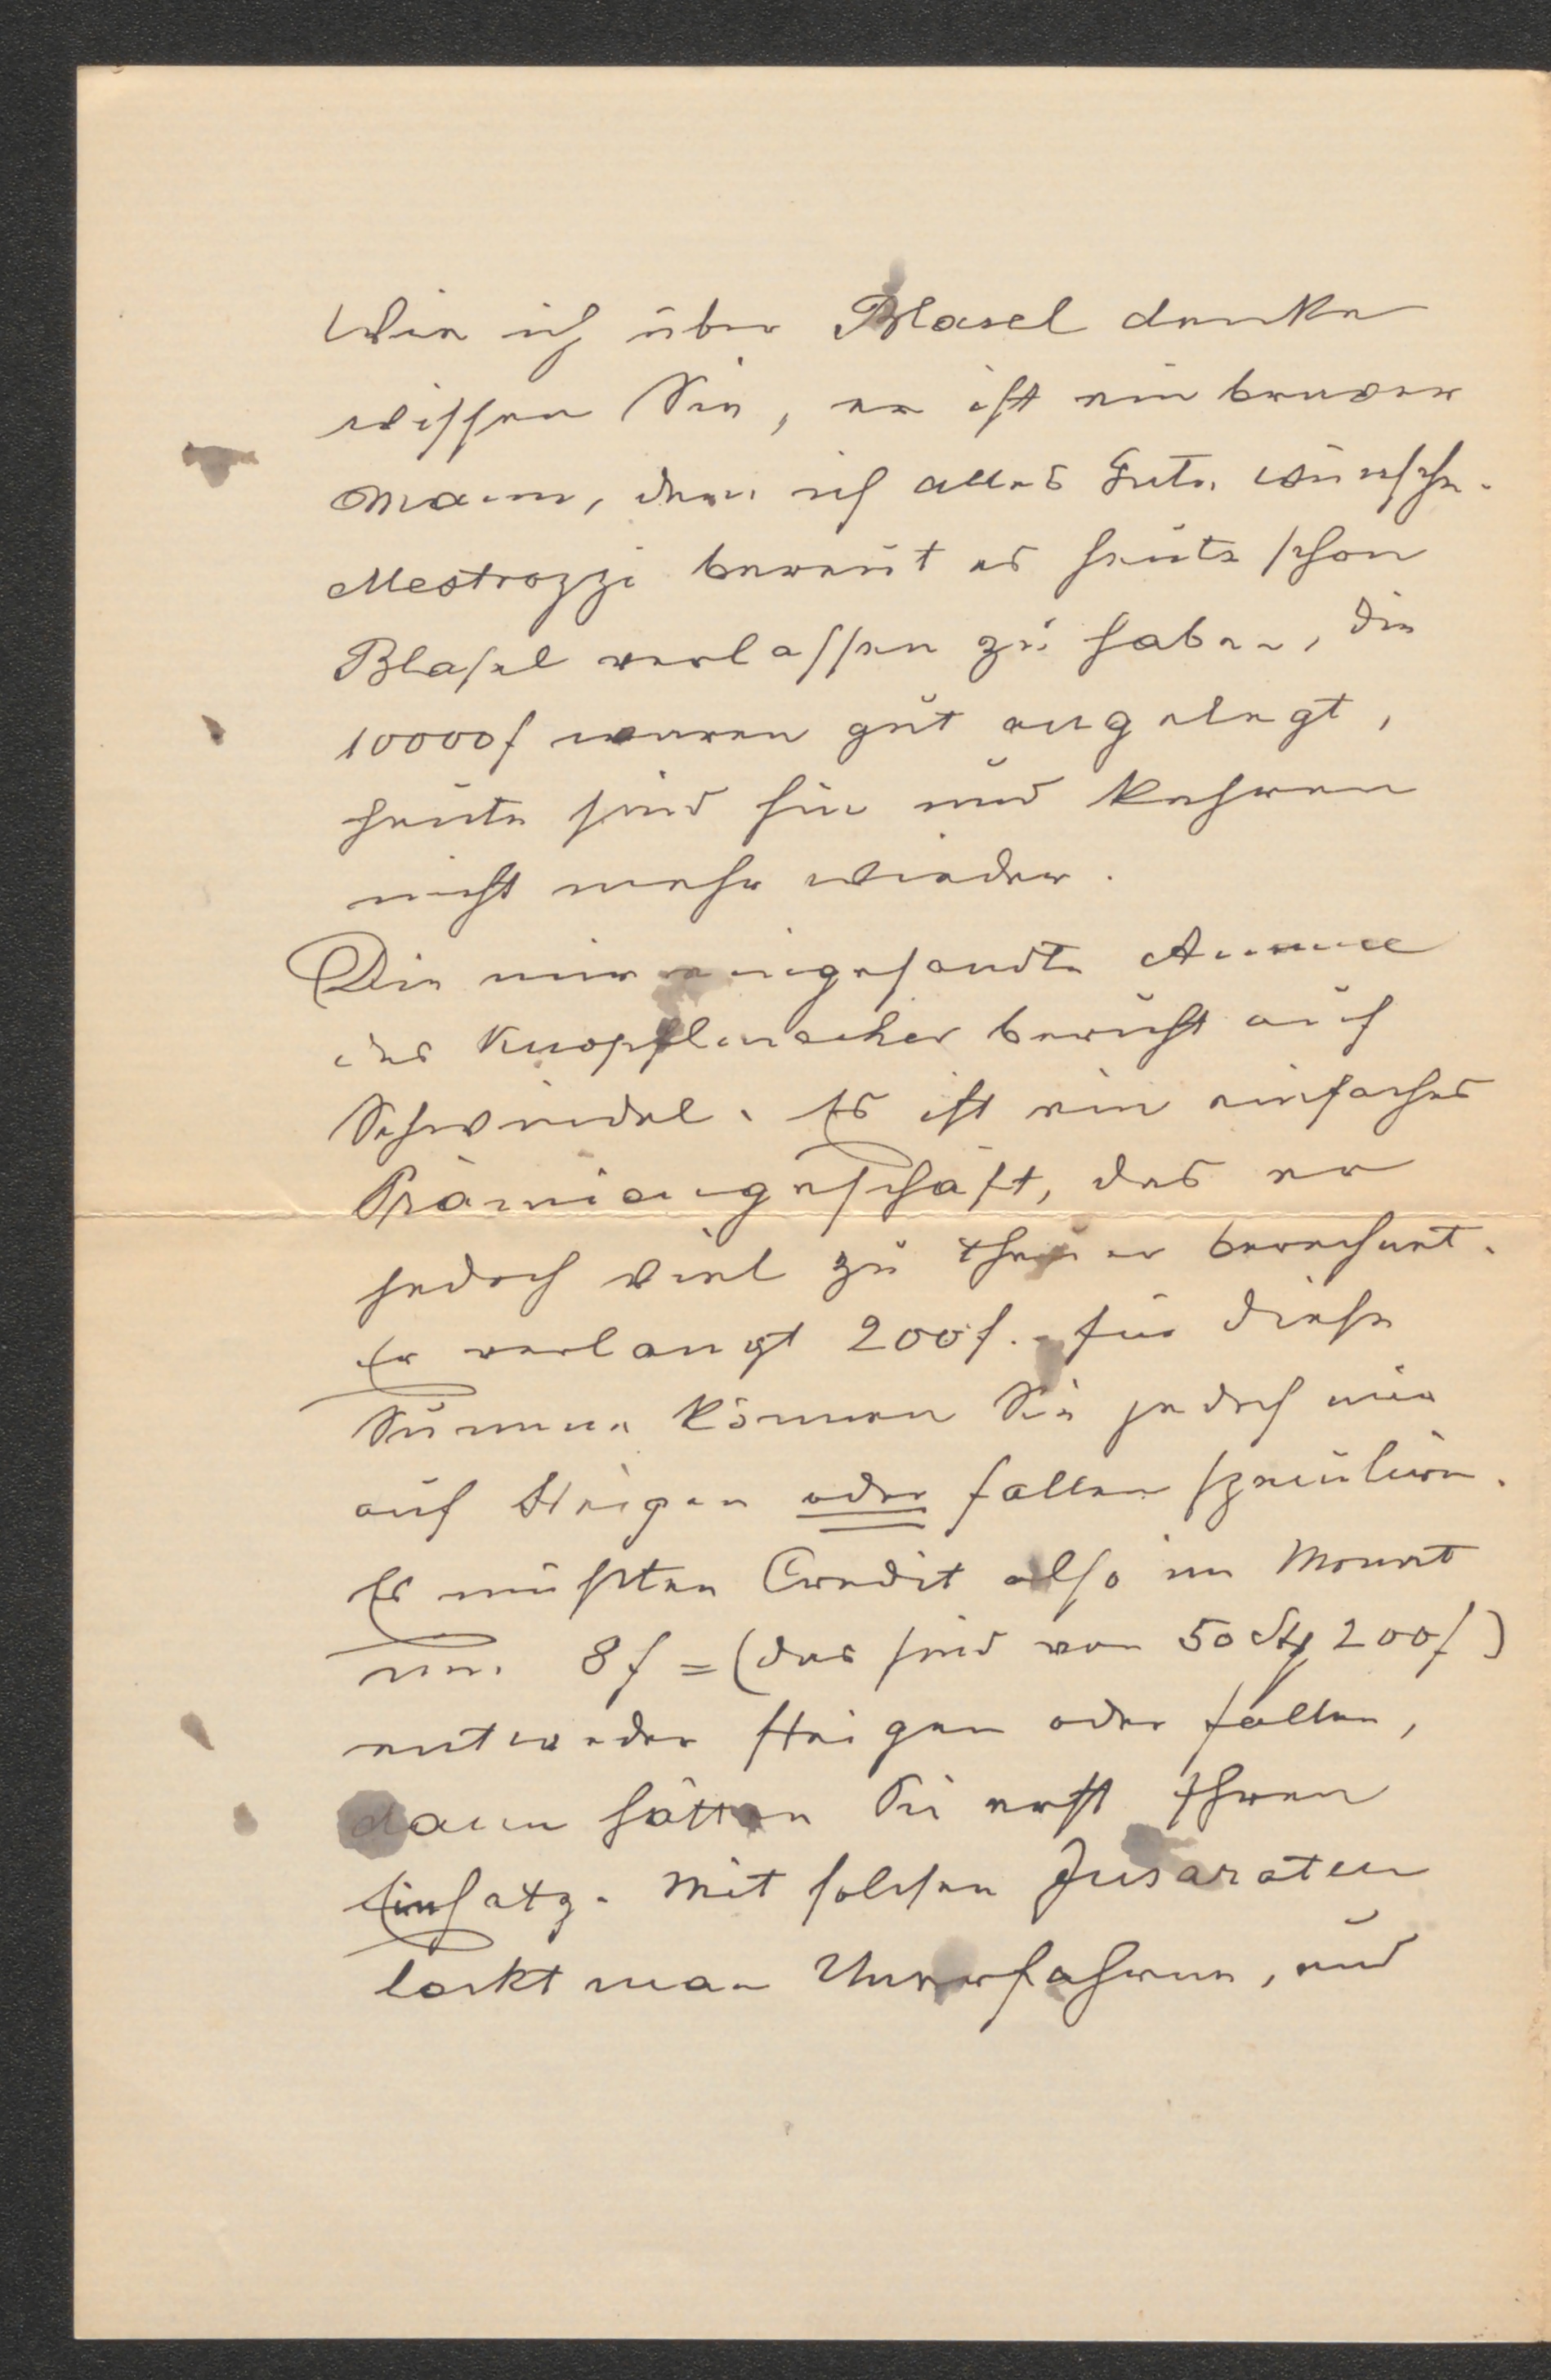 Wie ich über Blasel denke
wissen Sie, er ist ein braver
Mann, dem ich alles Gute wünsche.
Mestrozzi bereut es heute schon
Blasel verlassen zu haben, die
10000f waren gut angelegt,
heute sind hin und kehren
nicht mehr wieder.
Die mir eingesandte Annonce
des Knopflmacher beruht auf
Schwindel. Es ist ein einfaches
Prämiengeschäft, das er
jedoch viel zu theuer berechnet.
Er verlangt 200f. für diese
Summe können Sie jedoch nur
auf Steigen oder fallen speculiren.
Es müßten Credit also im Monat
um 8f = (das sind von 50 Stk 200f)
entweder steigen oder fallen,
dann hätten Sie erst Ihren
Einsatz. Mit solchen Inseraten
lockt man Unerfahrene, und